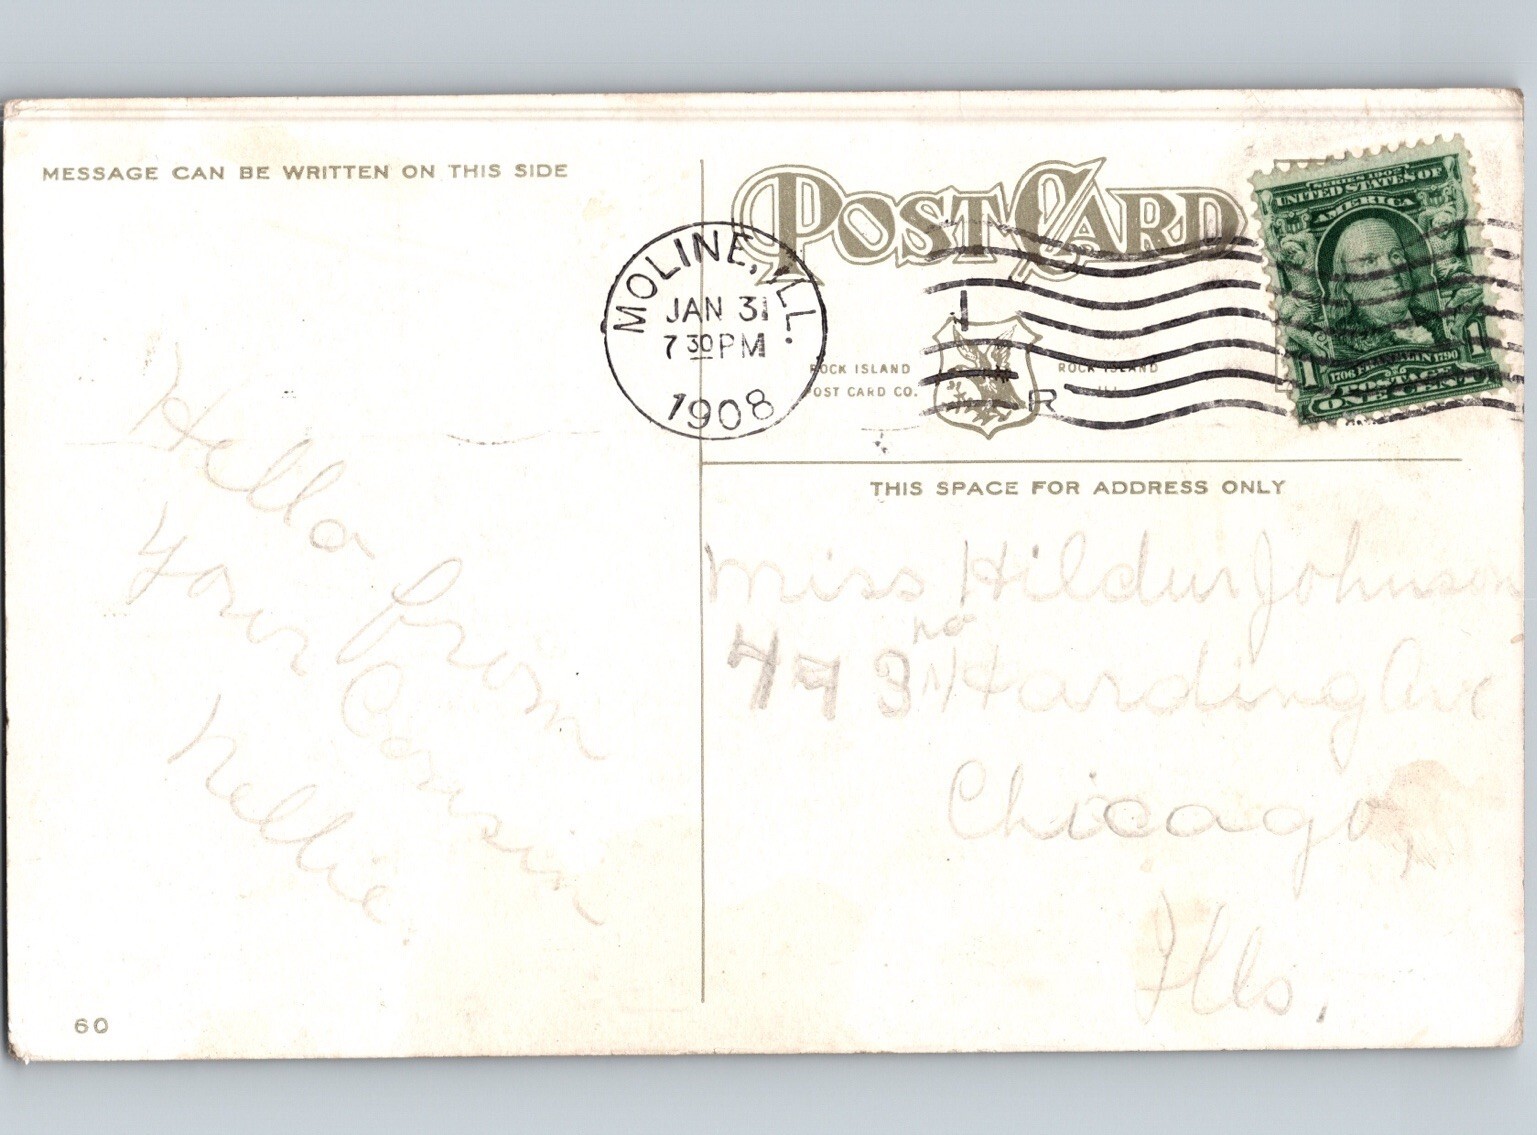 MESSAGE CAN BE WRITTEN ON THIS SIDE
POST CARD
MOLINE, ILL.
JAN 31
7 30 PM
1908
ROCK ISLAND
POST CARD CO.
ROCK ISLAND
ILL.
R
SERIES 1902
UNITED STATES OF
AMERICA
1706 FRANKLIN 1790
1 1
POSTAGE
ONE CENT
THIS SPACE FOR ADDRESS ONLY
Hello from
your Cousin
Nellie.
Miss Hildur Johnson
no
443 N Harding Ave
Chicago,
Ills.
60